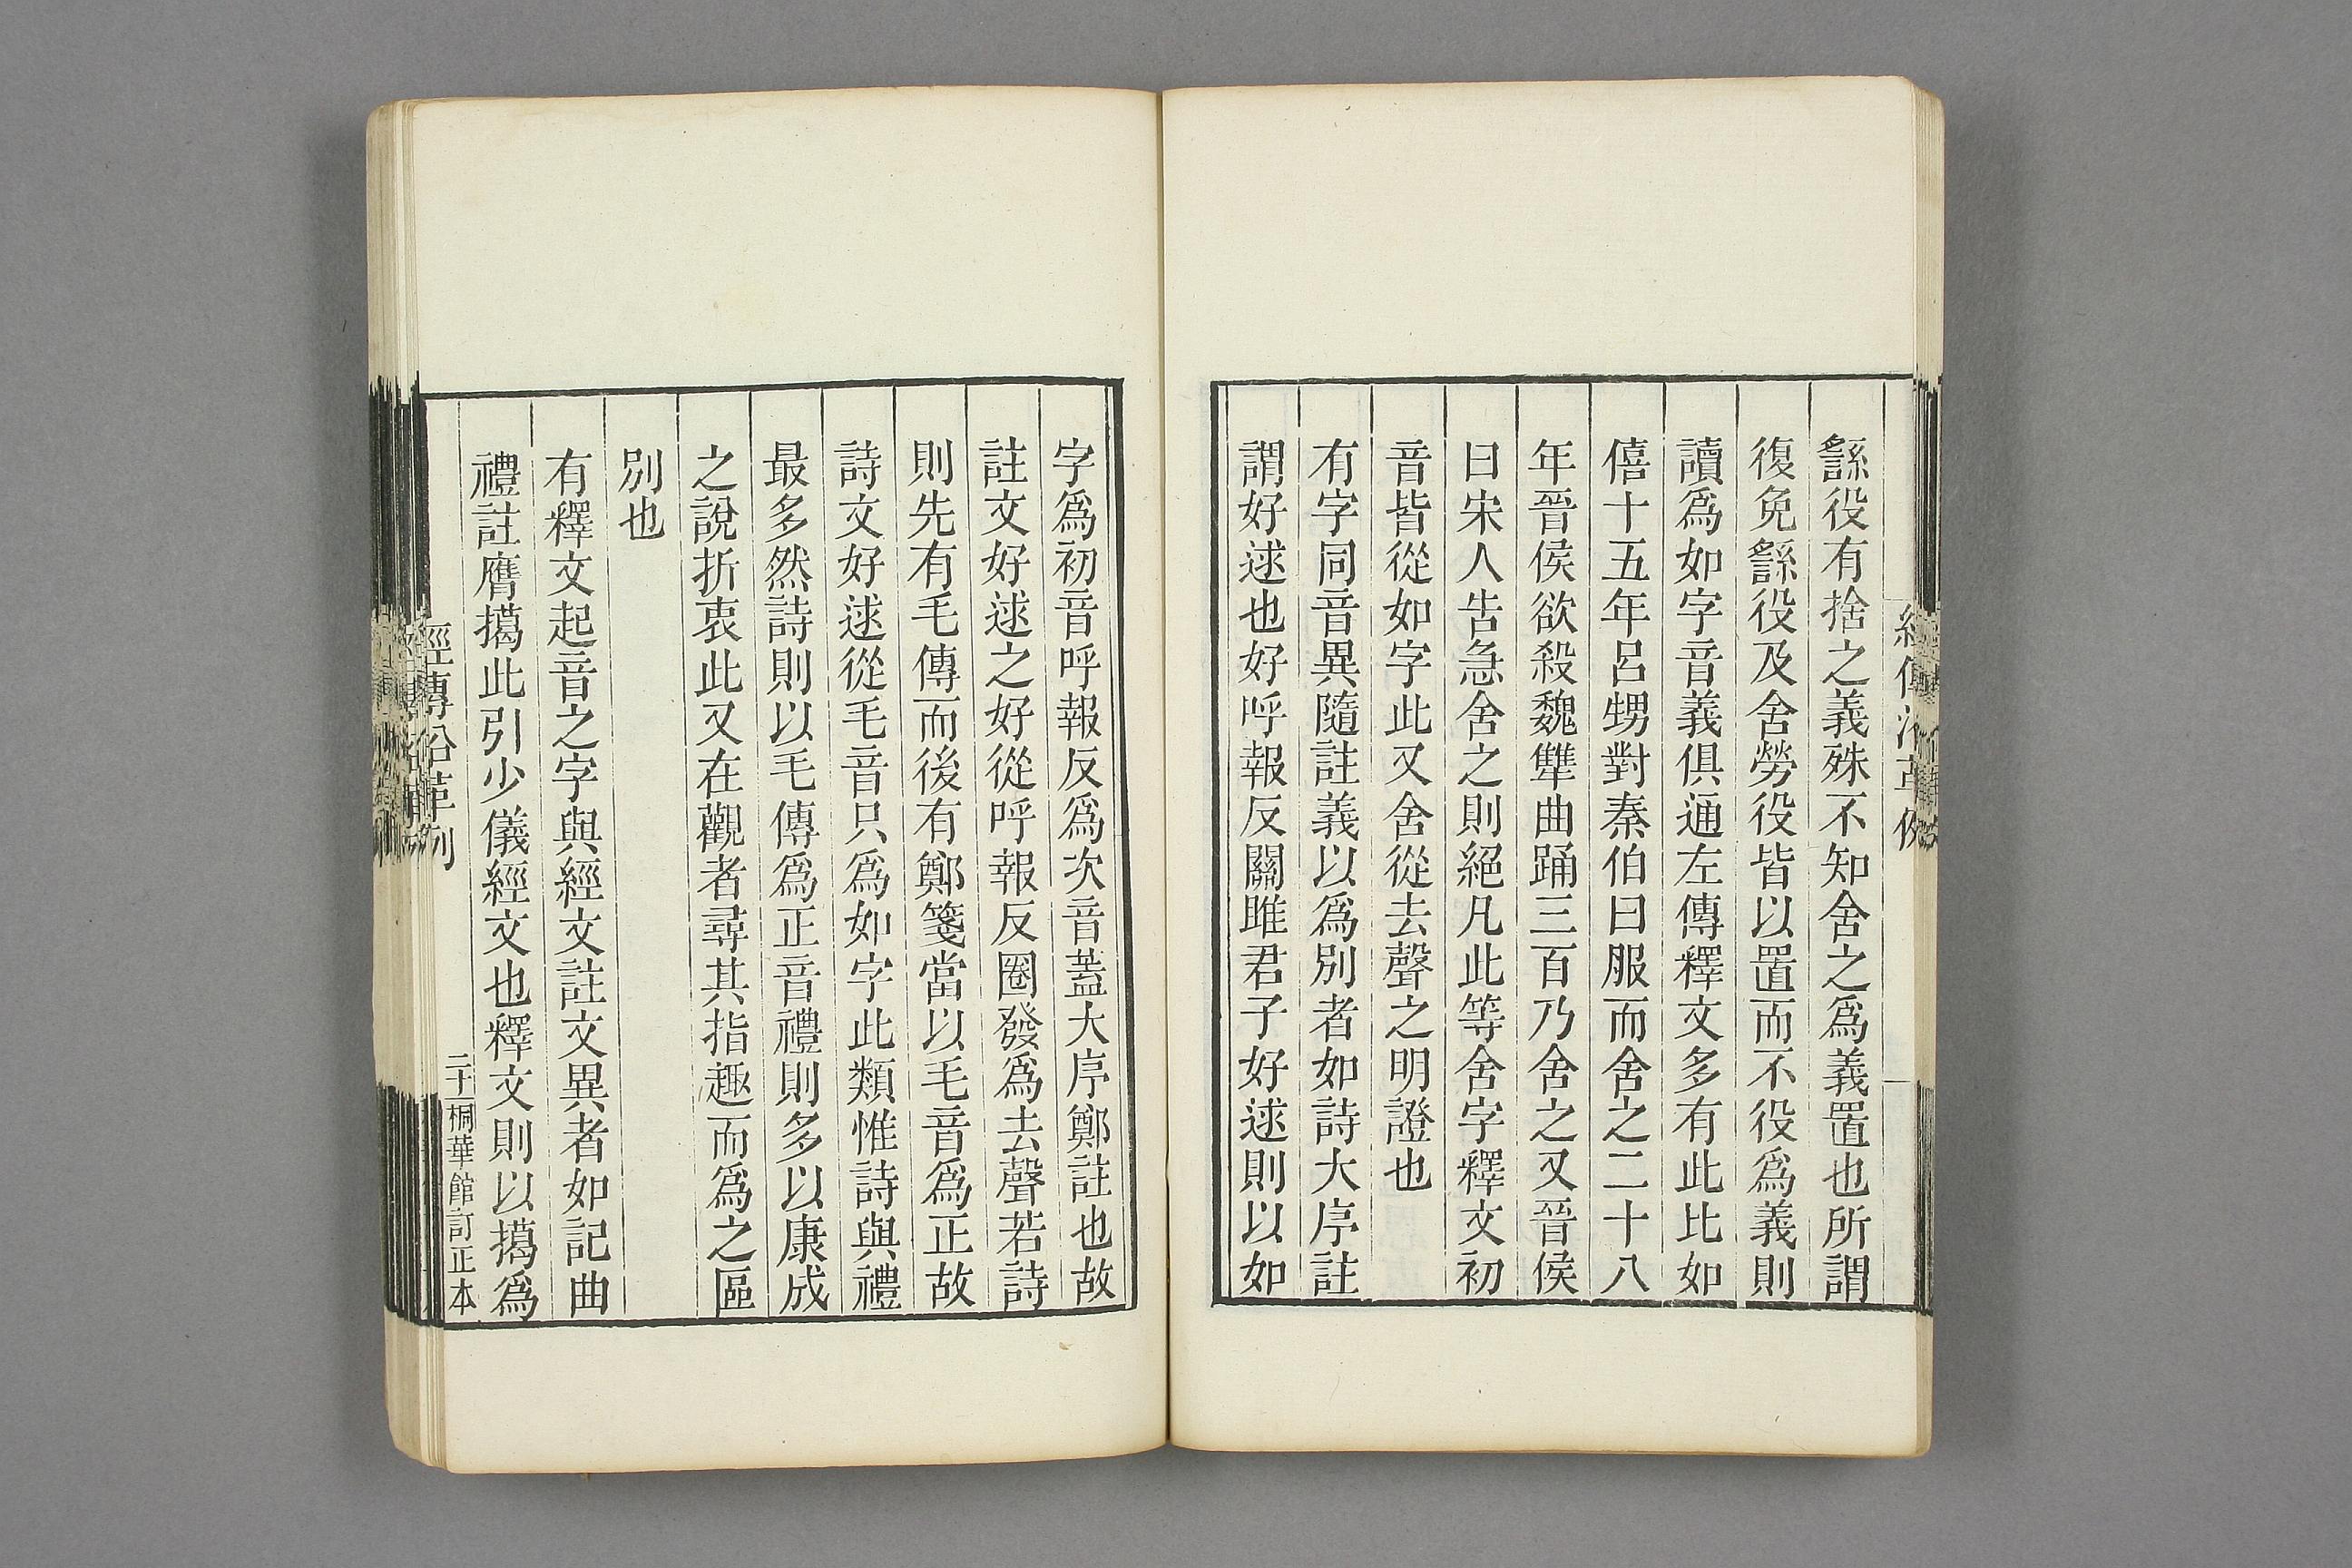 繇役有捨之義殊不知舍之爲義置也所謂
復免繇役及舍勞役皆以置而不役爲義則
讀爲如字音義俱通左傳釋文多有此比如
僖十五年呂甥對秦伯曰服而舍之二十八
年晉侯欲殺魏犨曲踊三百乃舍之又晉侯
曰宋人告急舍之則絕凡此等舍字釋文初
音皆從如字此又舍從去聲之明證也
有字同音異隨註義以爲別者如詩大序註
謂好逑也好呼報反關雎君子好逑則以如
字爲初音呼報反爲次音蓋大序鄭註也故
註文好逑之好從呼報反圈發爲去聲若詩
則先有毛傳而後有鄭箋當以毛音爲正故
詩文好逑從毛音只爲如字此類惟詩與禮
最多然詩則以毛傳爲正音禮則多以康成
之說折衷此又在觀者尋其指趣而爲之區
別也
有釋文起音之字與經文註文異者如記曲
禮註膺擖此引少儀經文也釋文則以擖爲
經傳沿革例
二十一
桐華館訂正本